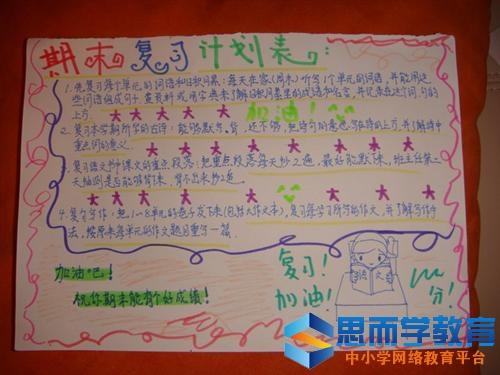 期末复习计划表:
1.先复习每个单元的词语和日积月累:每天在家(周末)听写1个单元的词语,并能用这
些词语组成句子,查资料或用字典来了解日积月累里的成语和名言,并记录在这个词、句的
上方。
加油!
2.复习本学期所学的古诗:能够默写、背,还不够,把诗句的意思写在诗的上方,并了解诗中
重点词的意义。
3.复习语文书中课文的重点段落:把重点段落每天抄2遍,最好能默下来,班主任第二
天抽测是否能够背来,背不出来抄2遍。
4.复习写作:把1~8单元的卷子发下来(包括大作文本),复习每学习所写的作文,并了解写作方
法,按原来每单元的作文题目重写一篇。
加油吧!
祝你期末能有个好成绩!
复习!
加油!
语文
100分!
思而学教育
中小学网络教育平台